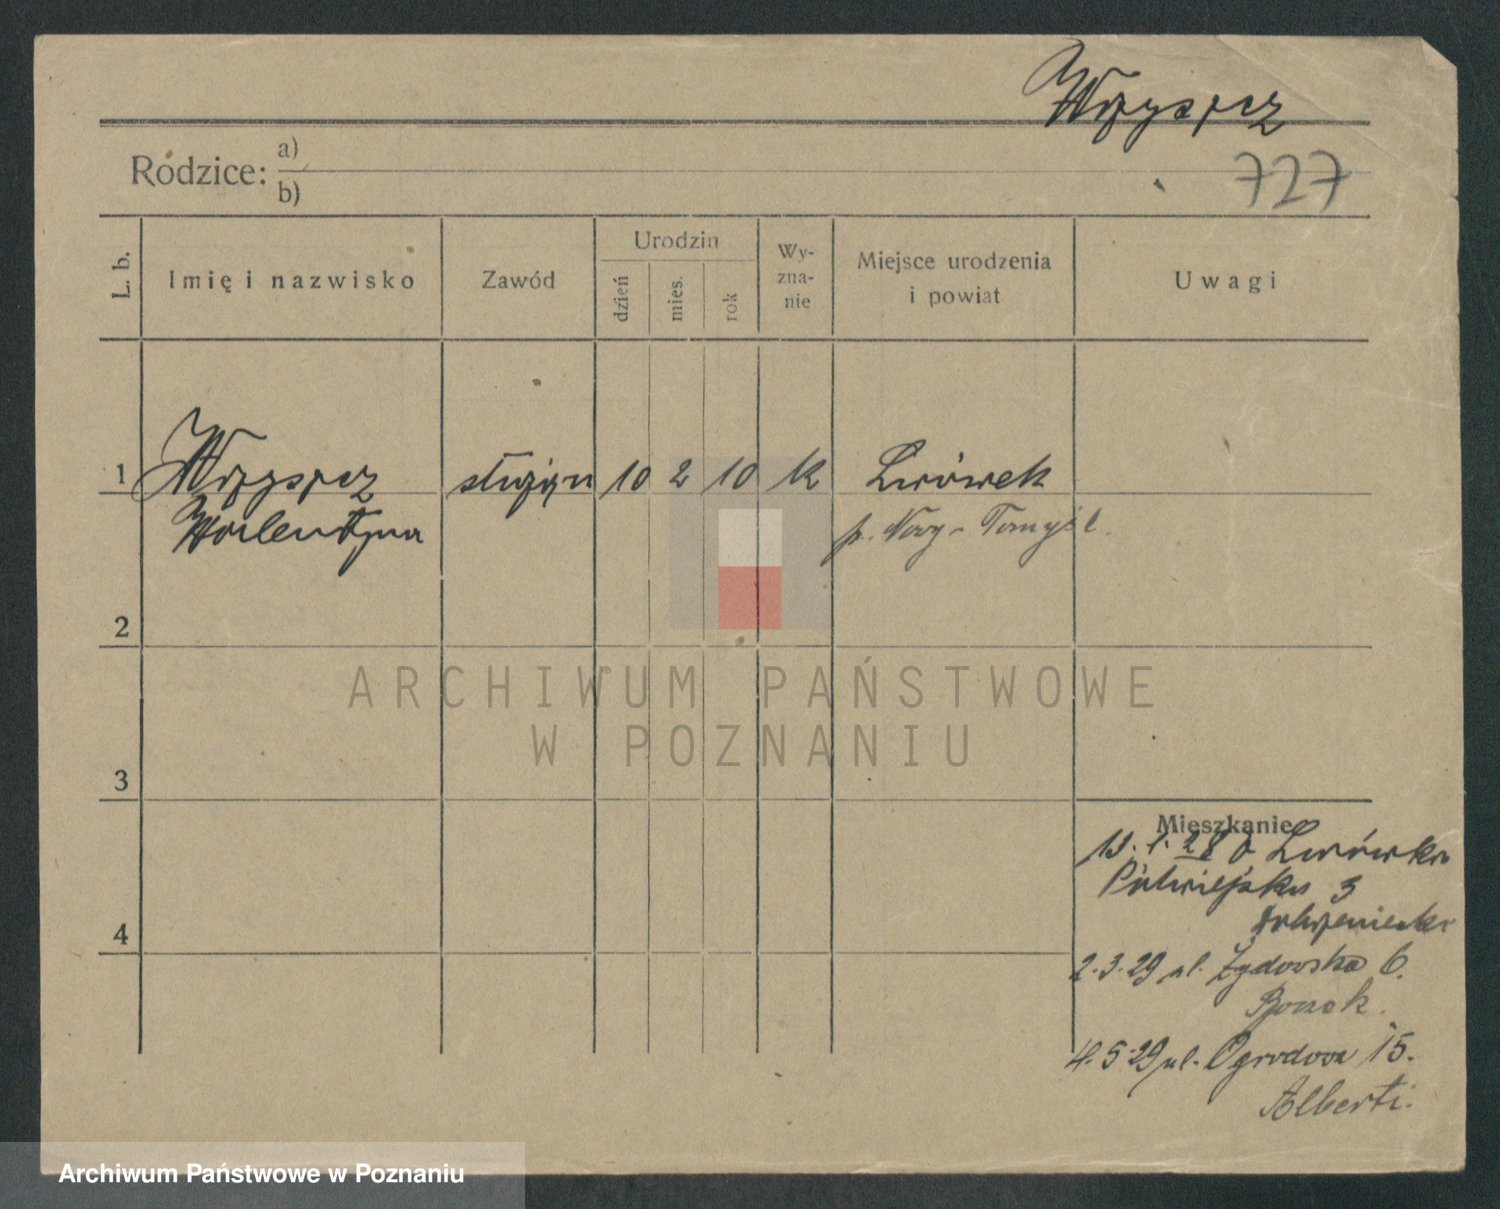 727
Rodzice: a)
b)
L. b.
Imię i nazwisko
Zawód
Urodzin
dzień
mies.
rok
Wy-
zna-
nie
Miejsce urodzenia
i powiat
Uwagi
1
służąca 10 2 10 k Lwówek
Walentyna p. Nowy-Tomyśl.
2
3
4
Mieszkanie
z Lwówka
Półwiejska 3
2.3.29 ul. Żydowska 6.
4.5.29 ul. Ogrodowa 15.
Alberti.
ARCHIWUM PAŃSTWOWE
W POZNANIU
Archiwum Państwowe w Poznaniu